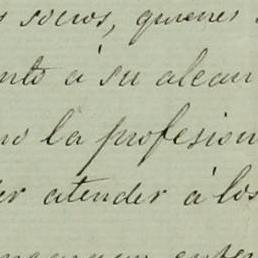 s socios, quienes
nto á su alcan
no la profesion
er atender á los